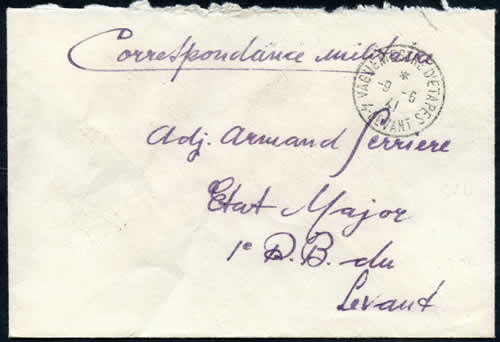 Correspondance militaire
VAGUEMESTRE D'ETAPES
*
9 - 6
41
LEVANT
Adj. Armand Ferrière
Etat Major
1e D.B. du
Levant